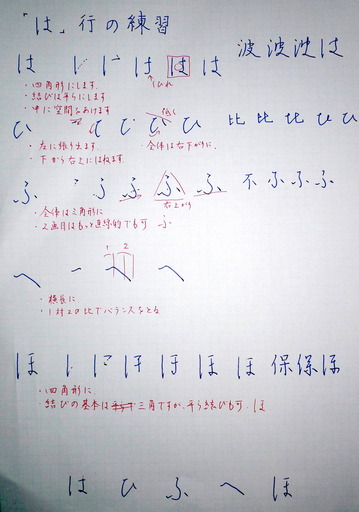 「は」行の練習
は し に は は は 波 波 波 は
くびれ
・四角形にします。
・結びは平らにします
・中に空間をあけます
ひ て ひ ひ ひ 比 比 比 ひ ひ
・左に張り出ます。 ・全体は右下がりに。
・下から右上にはねます。
ふ ふ ふ ふ 不 ふ ふ ふ
右上がり
・全体は三角形に
・2画目はもっと直線的でも可 ふ
1 2
へ へ へ
・横長に
・1対2の比でバランスをとる
ほ し に ほ ほ ほ ほ 保 保 ほ
・四角形に
・結びの基本は三角ですが、平ら結びも可. ほ
は ひ ふ へ ほ